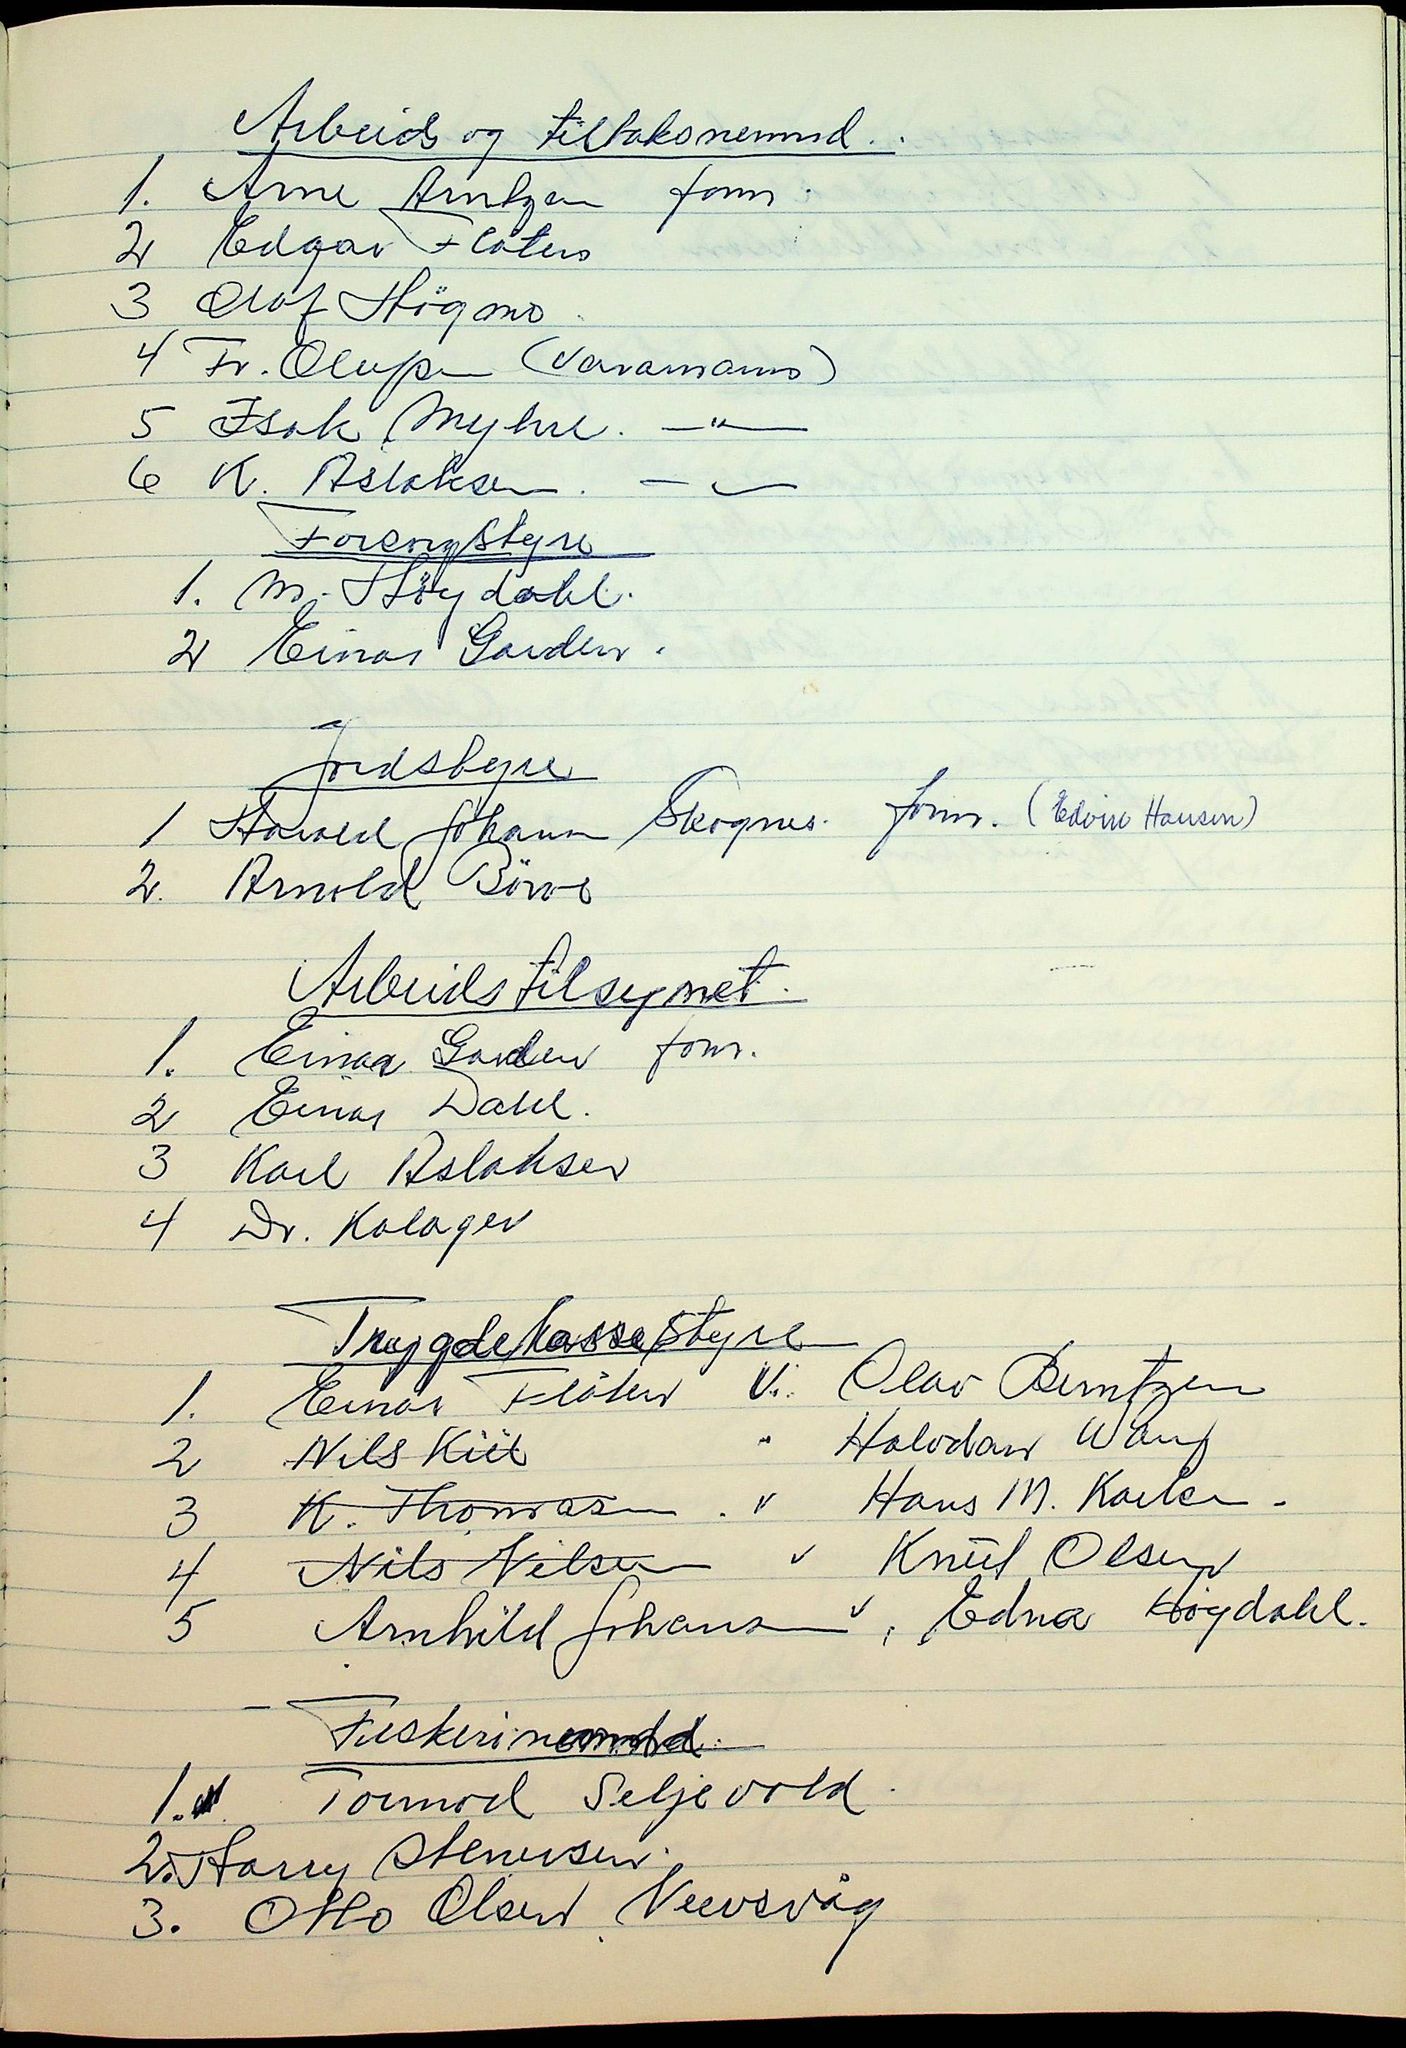 Arbeids og tiltaksnemnd.
1. Arne Arntzen form.
2 Edgar Flåten
3 Olaf Högmo
4 Fr. Olufsen (Varamann)
5 Isak Myhre. —"—
6 K. Aslaksen. —"—
Forsorgstyre
1. M. Högdahl.
2 Einar Garden.
Jordstyre
1 Harald Johann Skognes. form. (Edvin Hansen)
2. Arnold Börve
Arbeidstilsynet.
1. Einar Garden form.
2 Einar Dahl.
3 Karl Aslaksen
4 Dr. Kalager
Trygdekassestyre
1. Einar Flåten V. Olav Berntzen
2 Nils Kiil " Halvdan Wang
3 K. Thomasen . v Hans M. Karlsen.
4 Nils Nilsen v Knut Olsen
5 Arnhild Johansen v, Edna Högdahl.
Fiskerinemnd.
1. Tormod Seljevold.
2. Harry Stenersen.
3. Otto Olsen Veevsvåg